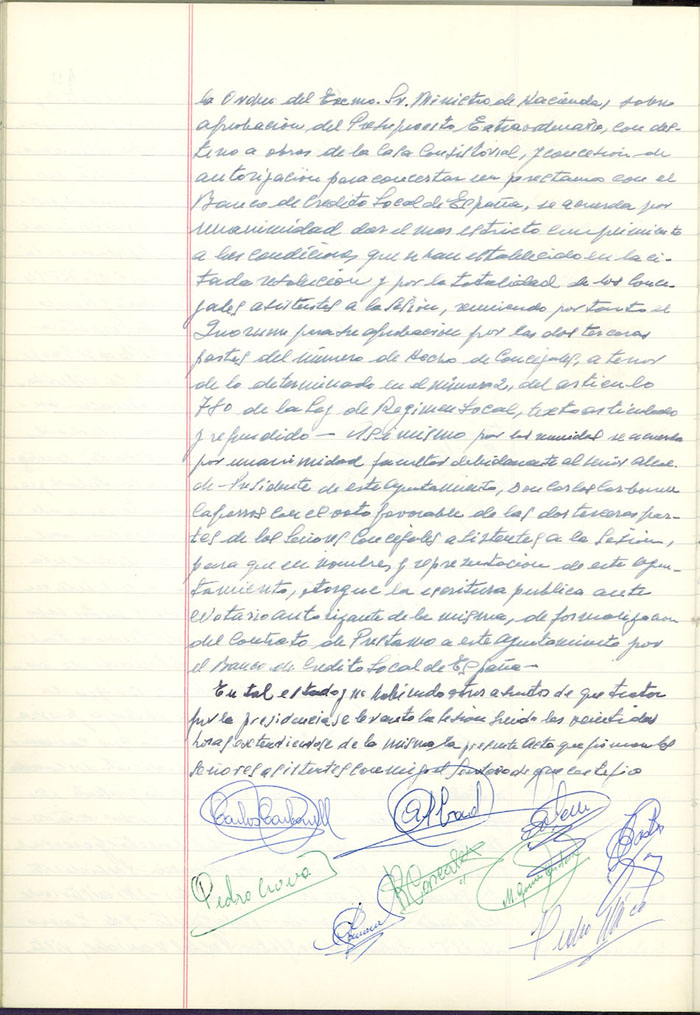 la Orden del Excmo. Sr. Ministro de Hacienda, sobre
aprobación del Presupuesto Extraordinario, con des-
tino a obras de la Casa Consistorial, y concesión de
autorización para concertar un prestamo con el
Banco de Credito Local de España, se acuerda por
unanimidad dar el mas estricto cumplimiento
a las condiciones que se han establecido en la ci-
tada resolución y por la totalidad de los Conce-
jales asistentes a la Sesión, reuniendo por tanto el
Quorum para su aprobación por las dos terceras
partes del número de Hecho de Concejales, a tenor
de lo determinado en el número 2, del articulo
780 de la Ley de Regimen Local, texto articulado
y refundido — Asi mismo por se acuerda
por unanimidad facultar debidamente al Señor Alcal-
de-Presidente de este Ayuntamiento, Don Carlos Carbonell
con el voto favorable de las dos terceras par-
tes de los Señores Concejales asistentes a la Sesión,
para que en nombre y representación de este Ayun-
tamiento, otorgue la escritura publica ante
Notario autorizante de la misma, de formalización
del Contrato de Prestamo a este Ayuntamiento por
el Banco de Credito Local de España—
En tal estado y no habiendo otros asuntos de que tratar
por la presidencia, se levanto la sesion siendo las veintidos
horas extendiendose de la misma la presente Acta que firman los
Señores asistentes conmigo el Secretario de que certifico
Carlos Carbonell
Pedro
Pedro Micó